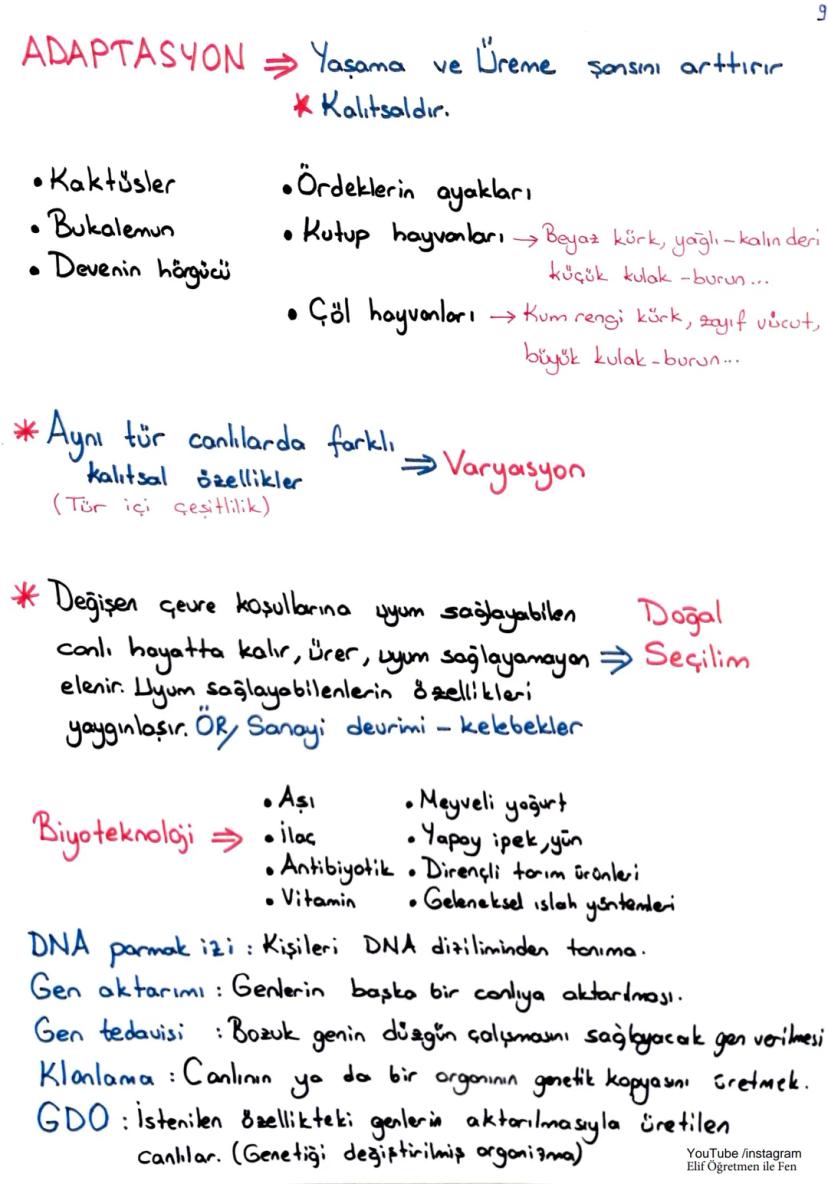 9
ADAPTASYON ⇒ Yaşama ve Üreme şansını arttırır
* Kalıtsaldır.
• Kaktüsler
• Bukalemun
• Devenin hörgücü
• Ördeklerin ayakları
• Kutup hayvanları → Beyaz kürk, yağlı-kalın deri
küçük kulak-burun...
• Çöl hayvanları → Kum rengi kürk, zayıf vücut,
büyük kulak-burun...
* Aynı tür canlılarda farklı
kalıtsal özellikler ⇒ Varyasyon
(Tür içi çeşitlilik)
* Değişen çevre koşullarına uyum sağlayabilen
canlı hayatta kalır, ürer, uyum sağlayamayan ⇒ Doğal
Seçilim
elenir. Uyum sağlayabilenlerin özellikleri
yaygınlaşır. ÖR/ Sanayi devrimi - kelebekler
Biyoteknoloji ⇒
• Aşı
• İlaç
• Antibiyotik
• Vitamin
• Meyveli yoğurt
• Yapay ipek, yün
• Dirençli tarım ürünleri
• Geleneksel ıslah yöntemleri
DNA parmak izi : Kişileri DNA diziliminden tanıma.
Gen aktarımı : Genlerin başka bir canlıya aktarılması.
Gen tedavisi : Bozuk genin düzgün çalışmasını sağlayacak gen verilmesi
Klonlama : Canlının ya da bir organının genetik kopyasını üretmek.
GDO : İstenilen özellikteki genlerin aktarılmasıyla üretilen
canlılar. (Genetiği değiştirilmiş organizma)
YouTube /instagram
Elif Öğretmen ile Fen